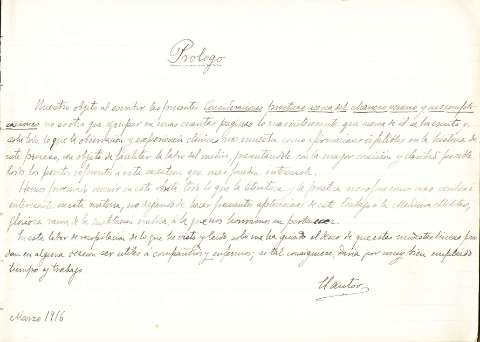 Prologo
Nuestro objeto al escribir las presentes Consideraciones practicas acerca del chancro venereo y sus compli-
caciones no es otro que agrupar en unas cuantas paginas lo mas interesante que acerca de el se ha escrito y
sobre todo lo que la observacion y experiencia clinica nos muestra como
este proceso, con objeto de facilitar la labor del medico, presentandole con la mayor concision y claridad posible
todos los puntos referentes a esta cuestion que mas puedan interesarle.
Hemos procurado reunir en este todo lo que la literatura y la practica nos ofrecen mas
interesante en esta materia, no dejando de hacer presente aplicaciones de este trabajo a la Medicina Militar,
gloriosa rama de la medicina a la que nos honramos en pertenecer.
En esta labor de recopilacion de lo que he visto y leido, solo me ha guiado el deseo de que estas modestas lineas pue-
dan en alguna ocasion ser utiles a compañeros y enfermos; si tal consiguiere, daria por muy bien empleado
tiempo y trabajo
El autor
Marzo 1916